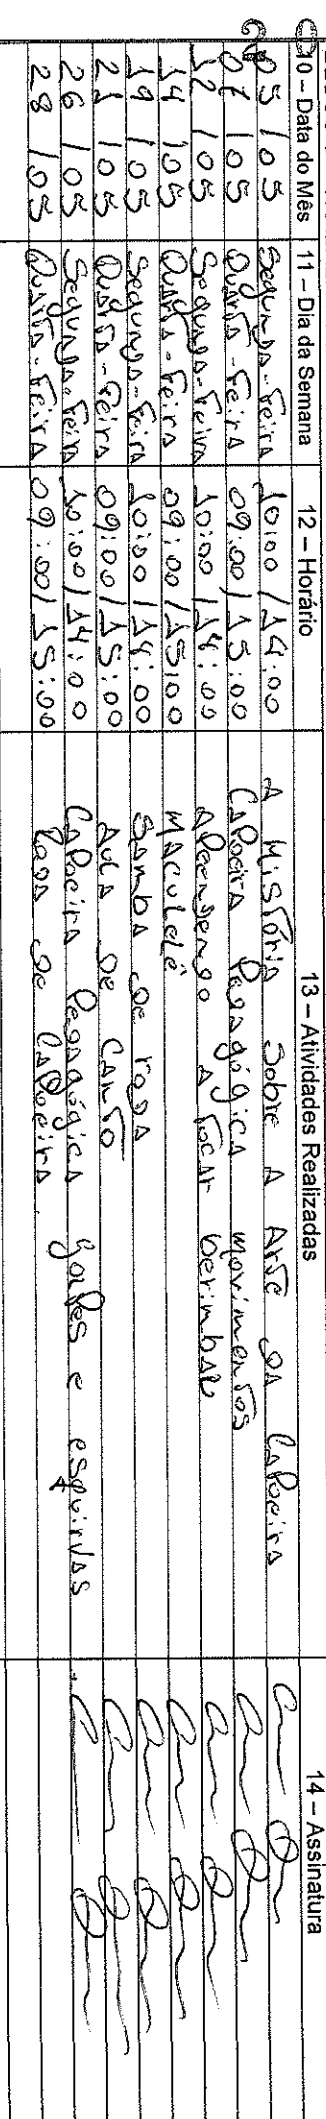 10 – Data do Mês 11 – Dia da Semana 12 – Horário 13 – Atividades Realizadas 14 – Assinatura
05 / 05 Segunda-feira 10:00 / 14:00 A História Sobre A Arte da Capoeira
07 / 05 Quarta-feira 09:00 / 15:00 Capoeira Pedagógica movimentos
12 / 05 Segunda-feira 10:00 / 14:00 Aprendendo A Tocar berimbau
14 / 05 Quarta-feira 09:00 / 15:00 Maculelê
19 / 05 Segunda-feira 10:00 / 14:00 Samba de roda
21 / 05 Quarta-feira 09:00 / 15:00 Aula de Canto
26 / 05 Segunda-feira 10:00 / 14:00 Capoeira Pedagógica golpes e esquivas
28 / 05 Quarta-feira 09:00 / 15:00 Roda de Capoeira